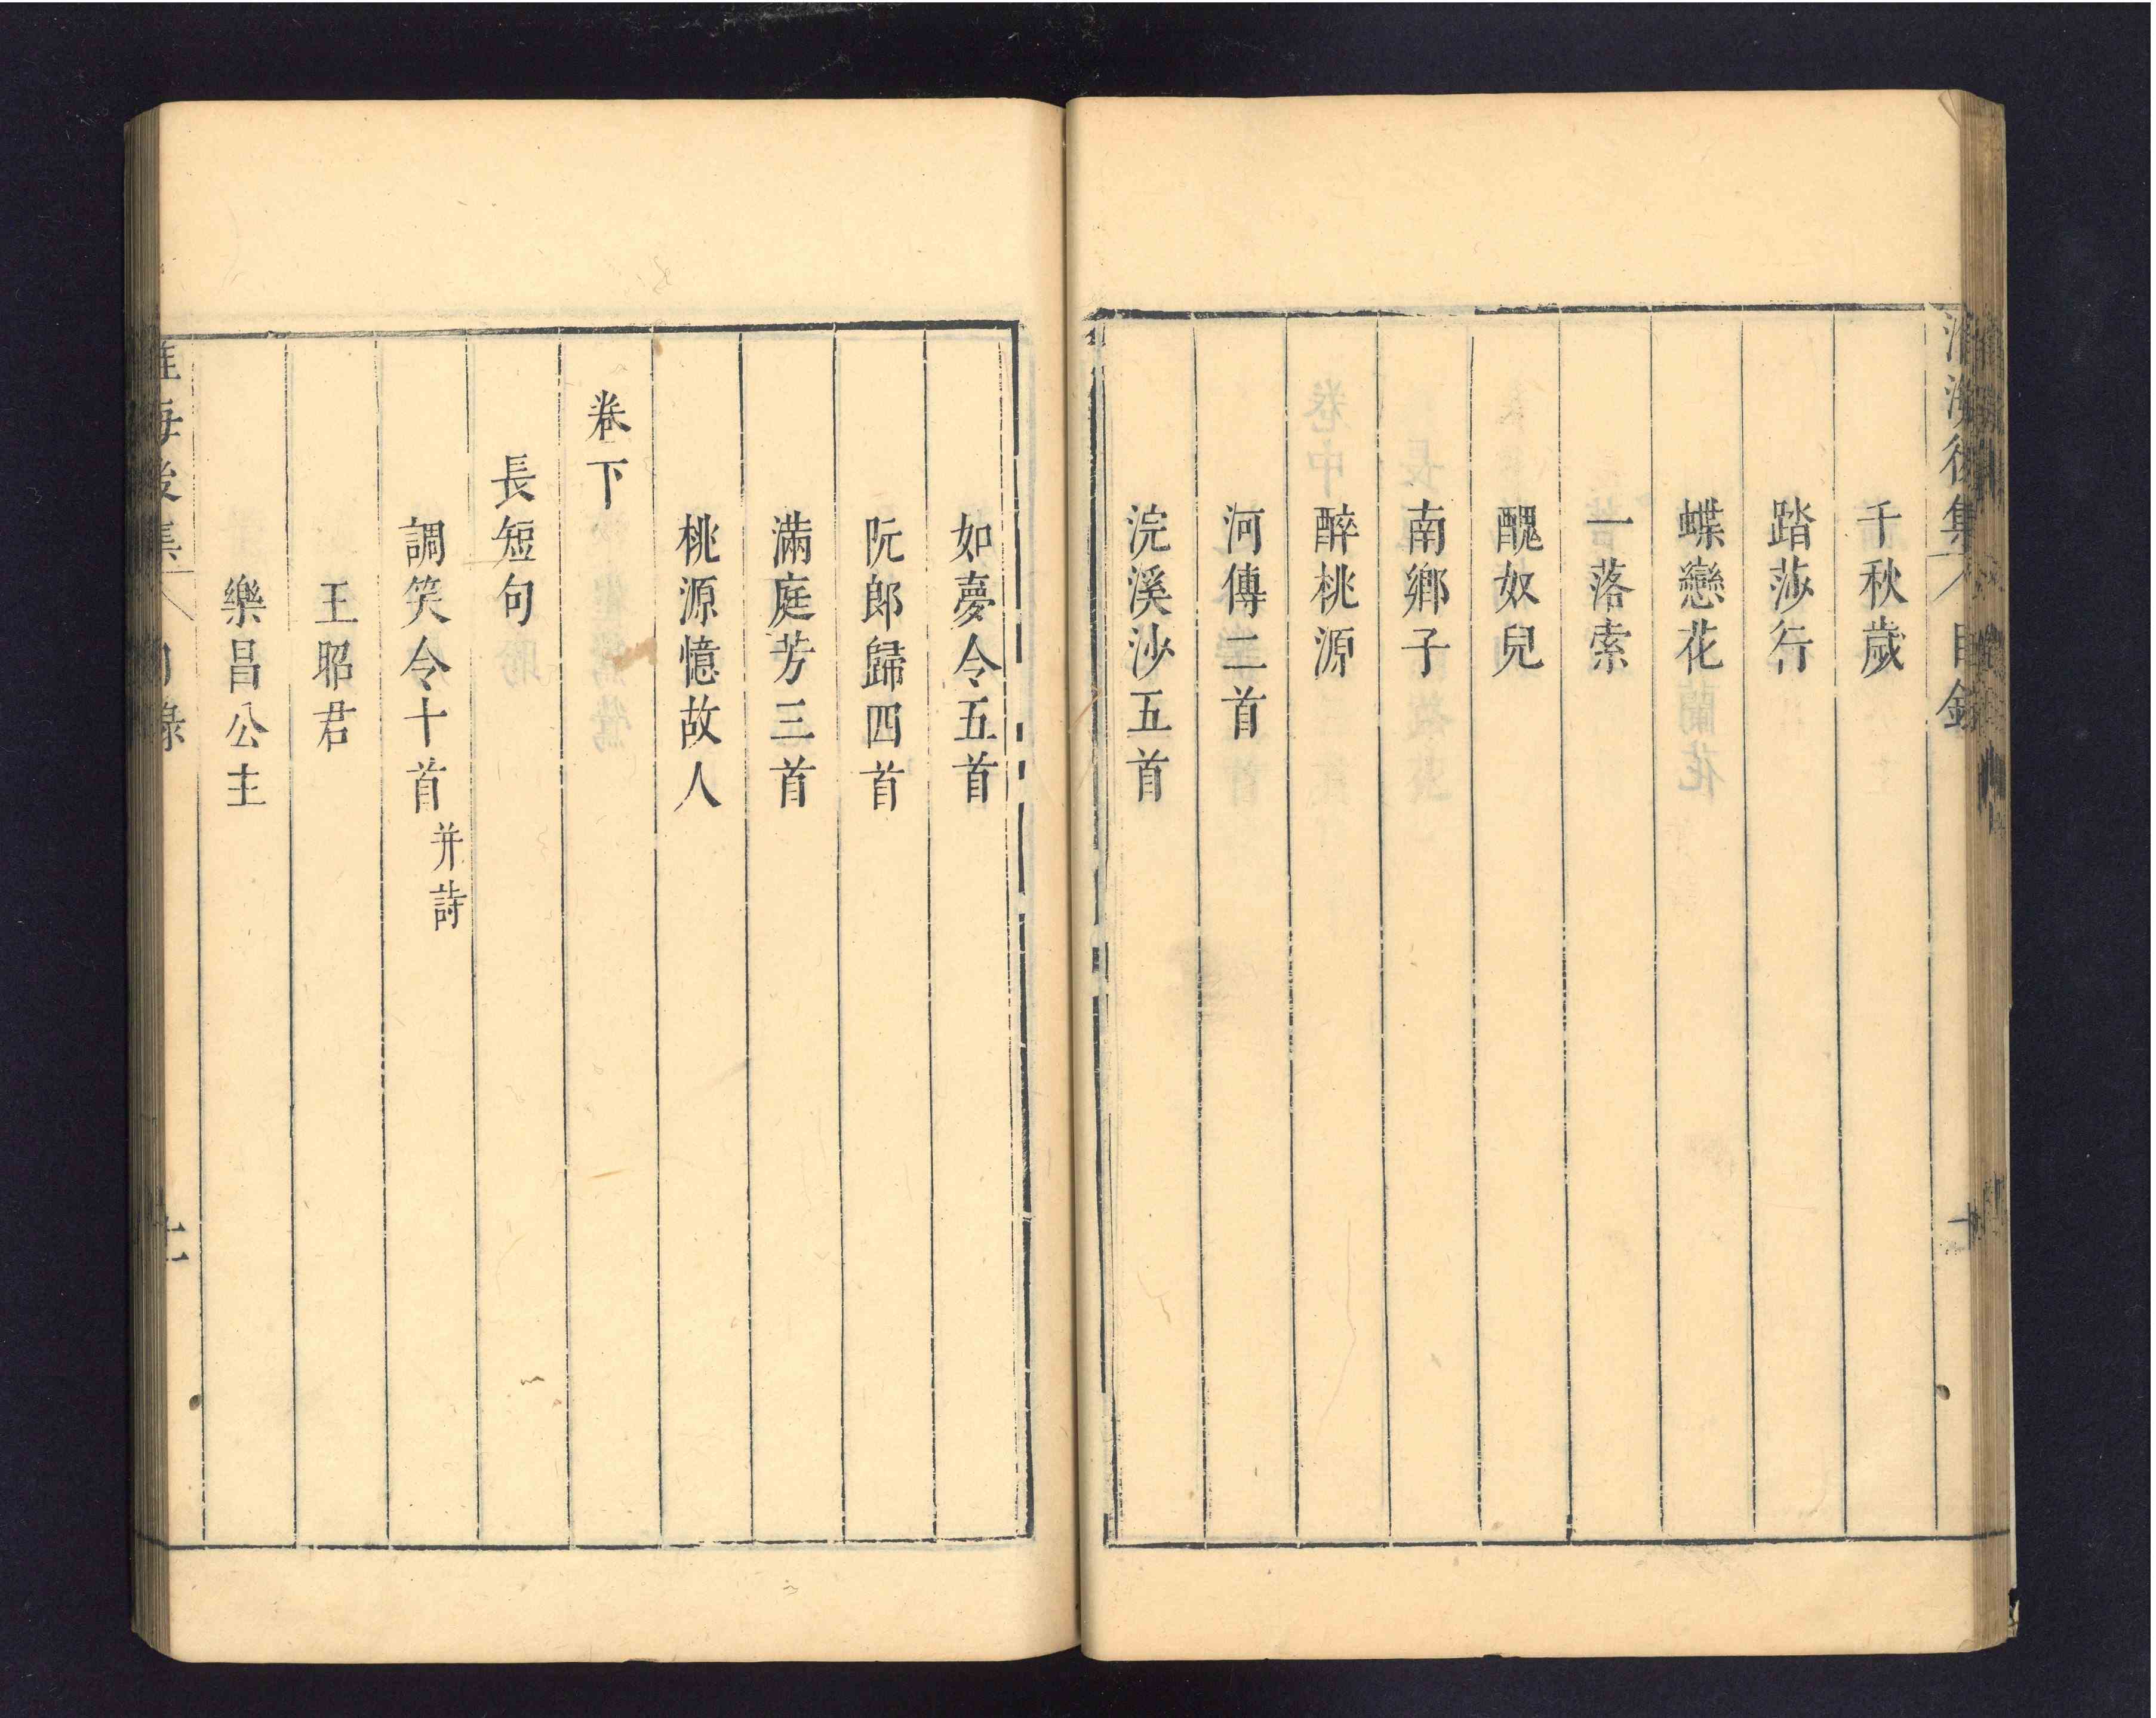 淮海後集 目錄
千秋歲
踏莎行
蝶戀花
一落索
醜奴兒
南鄉子
醉桃源
河傳二首
浣溪沙五首
如夢令五首
阮郎歸四首
滿庭芳三首
桃源憶故人
卷下
長短句
調笑令十首并詩
王昭君
樂昌公主
淮海後集 目錄